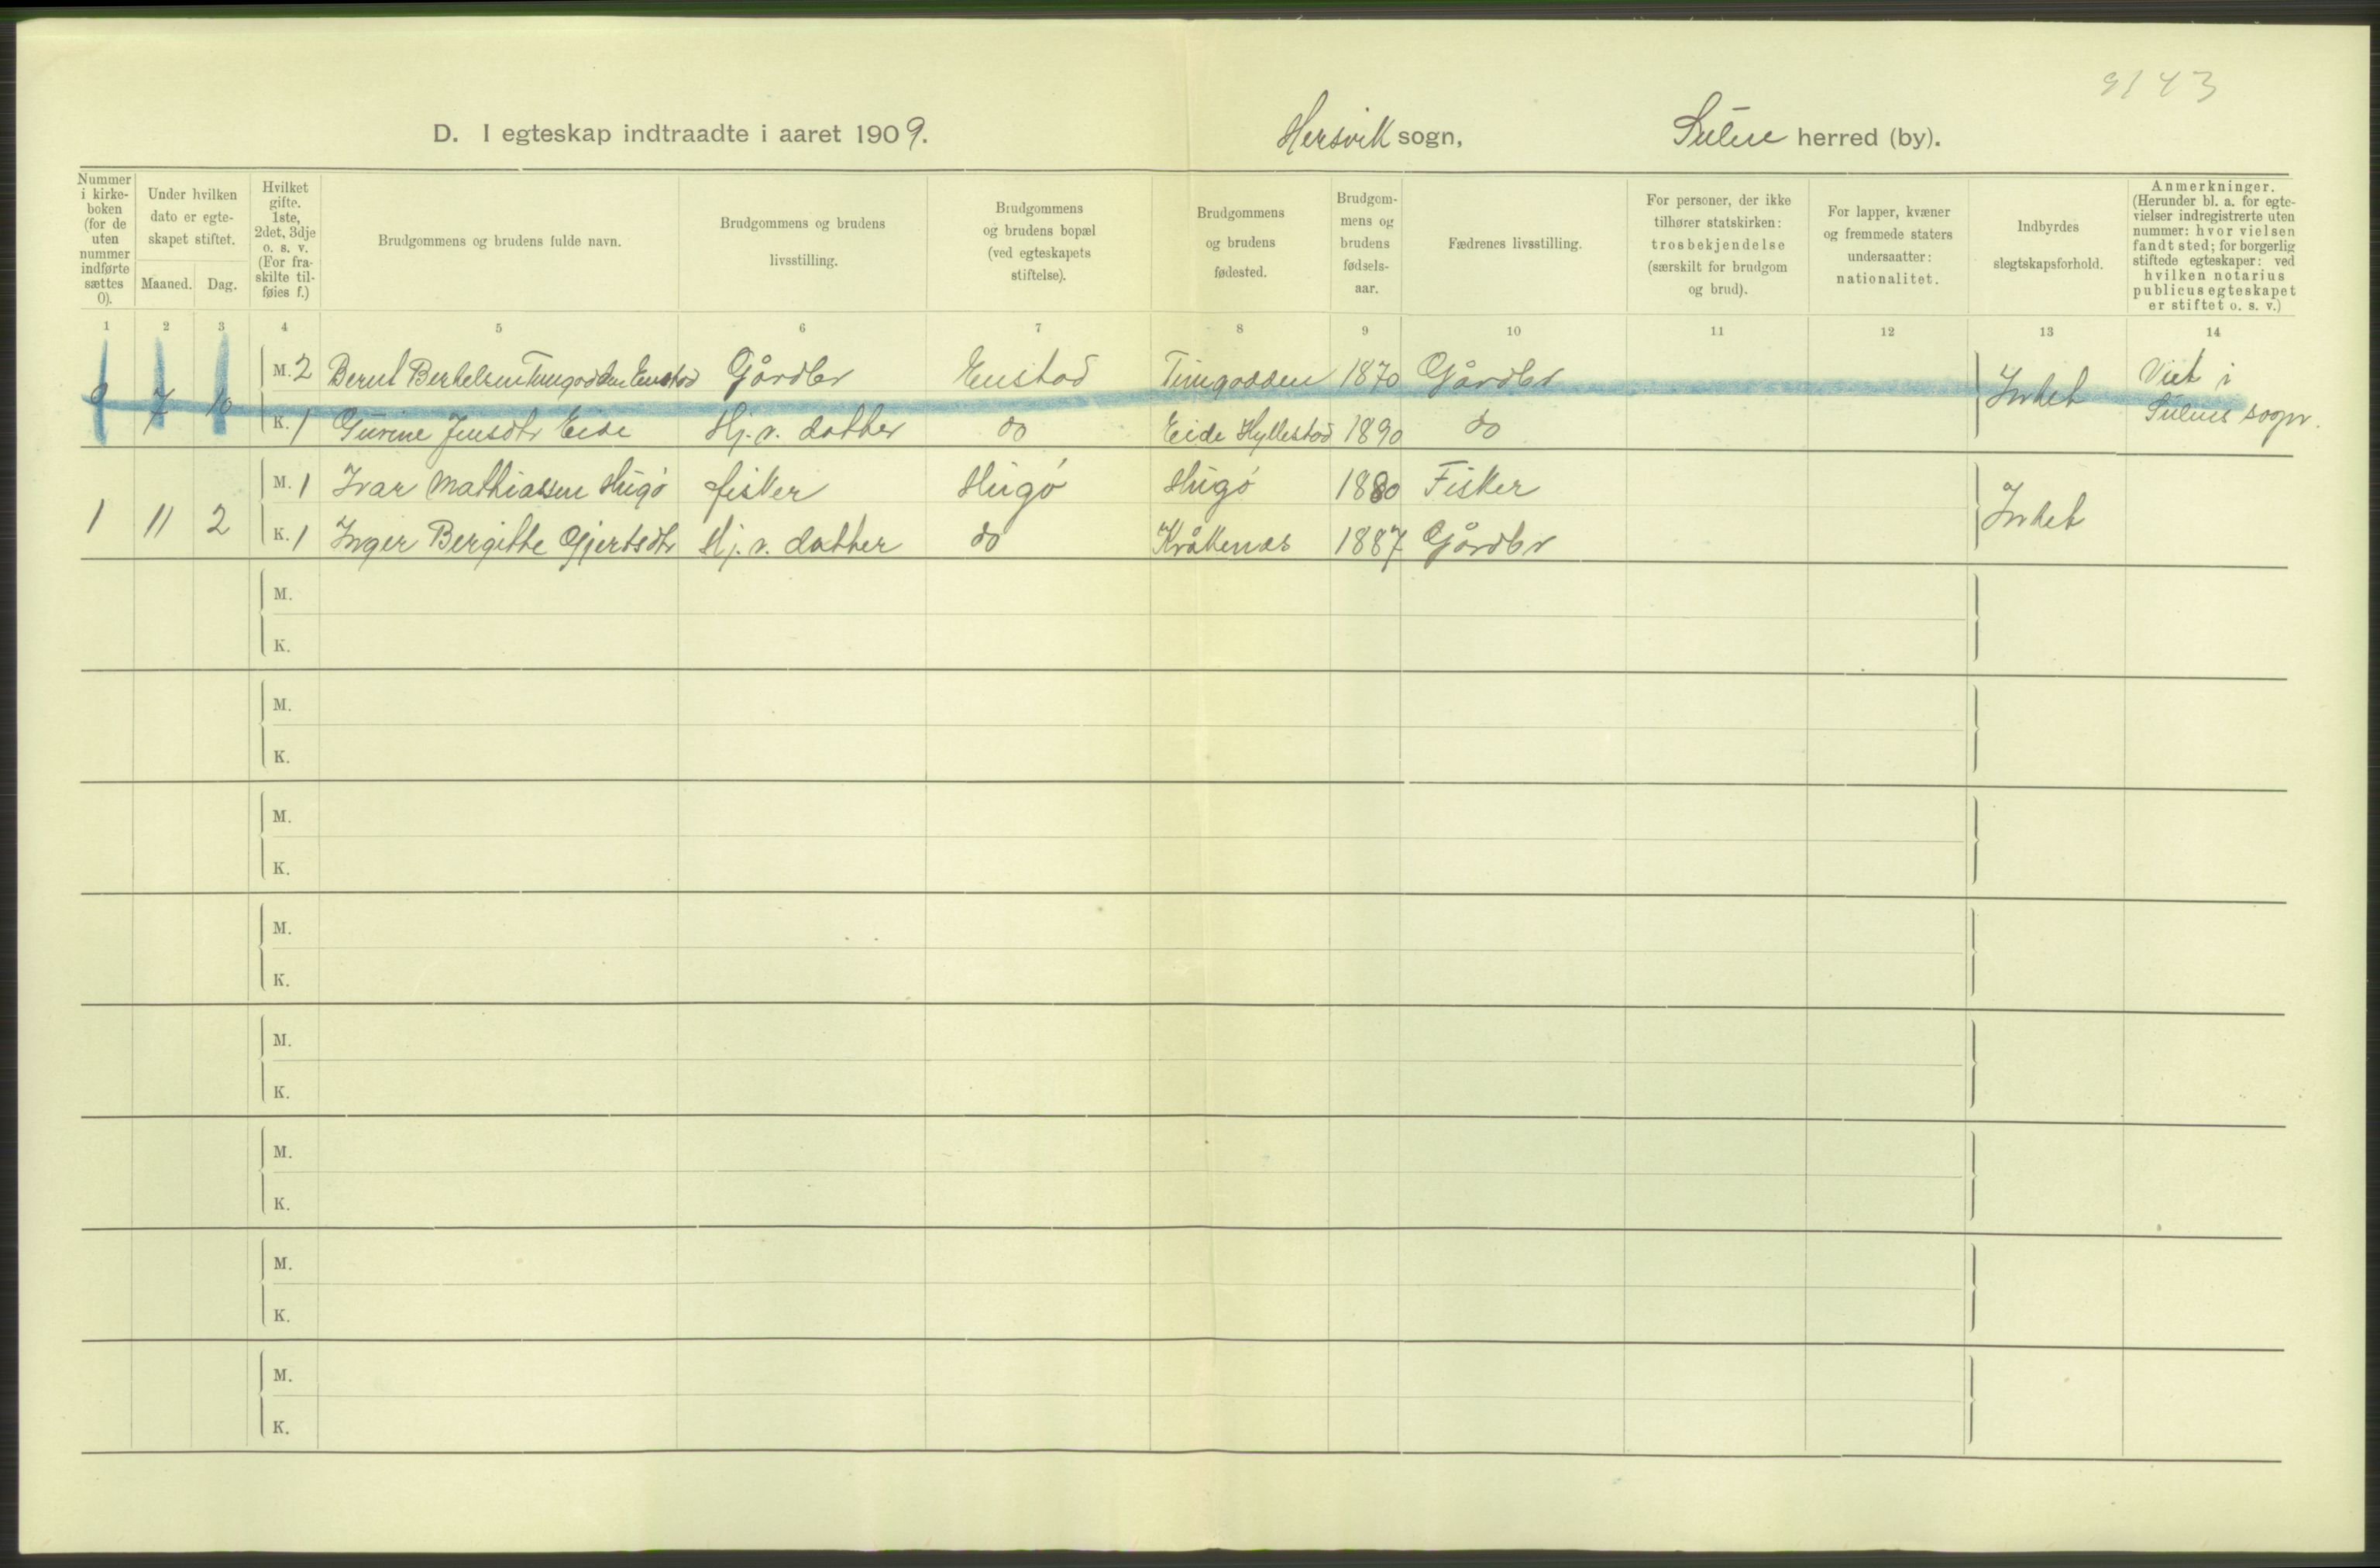 9143
D. I egteskap indtraadte i aaret 1909. Hersvik sogn, Sulen herred (by).
Nummer i kirkeboken (for de uten nummer indførte sættes 0).
Under hvilken dato er egteskapet stiftet.
Maaned. Dag.
Hvilket gifte. 1ste, 2det, 3dje o. s. v. (For fraskilte tilføies f.)
Brudgommens og brudens fulde navn.
Brudgommens og brudens livsstilling.
Brudgommens og brudens bopæl (ved egteskapets stiftelse).
Brudgommens og brudens fødested.
Brudgommens og brudens fødselsaar.
Fædrenes livsstilling.
For personer, der ikke tilhører statskirken: trosbekjendelse (særskilt for brudgom og brud).
For lapper, kvæner og fremmede staters undersaatter: nationalitet.
Indbyrdes slegtskapsforhold.
Anmerkninger. (Herunder bl. a. for egtevielser indregistrerte uten nummer: hvor vielsen fandt sted; for borgerlig stiftede egteskaper: ved hvilken notarius publicus egteskapet er stiftet o. s. v.)
1 2 3 4 5 6 7 8 9 10 11 12 13 14
9 7 10 M. 2 Bernt Berthelsen Enstad Gårdbr Enstad 1870 Gårdbr Intet Viet i
K. 1 Gurine Jensdtr Eide Hj. v. datter do Eide Hyllestad 1890 do Sulens sogn.
M. 1 Ivar Mathiassen Hugø fisker Hugø Hugø 1880 Fisker
1 11 2 Intet
K. 1 Inger Bergitte Gjertsdtr Hj. v. datter do Kråkenes 1887 Gårdbr
M.
K.
M.
K.
M.
K.
M.
K.
M.
K.
M.
K.
M.
K.
M.
K.